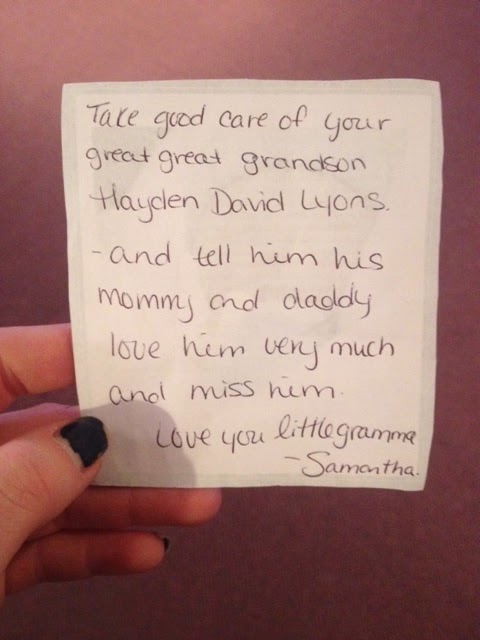 Take good care of your
great great grandson
Hayden David Lyons.
- and tell him his
mommy and daddy
love him very much
and miss him.
Love you little gramma
- Samantha.